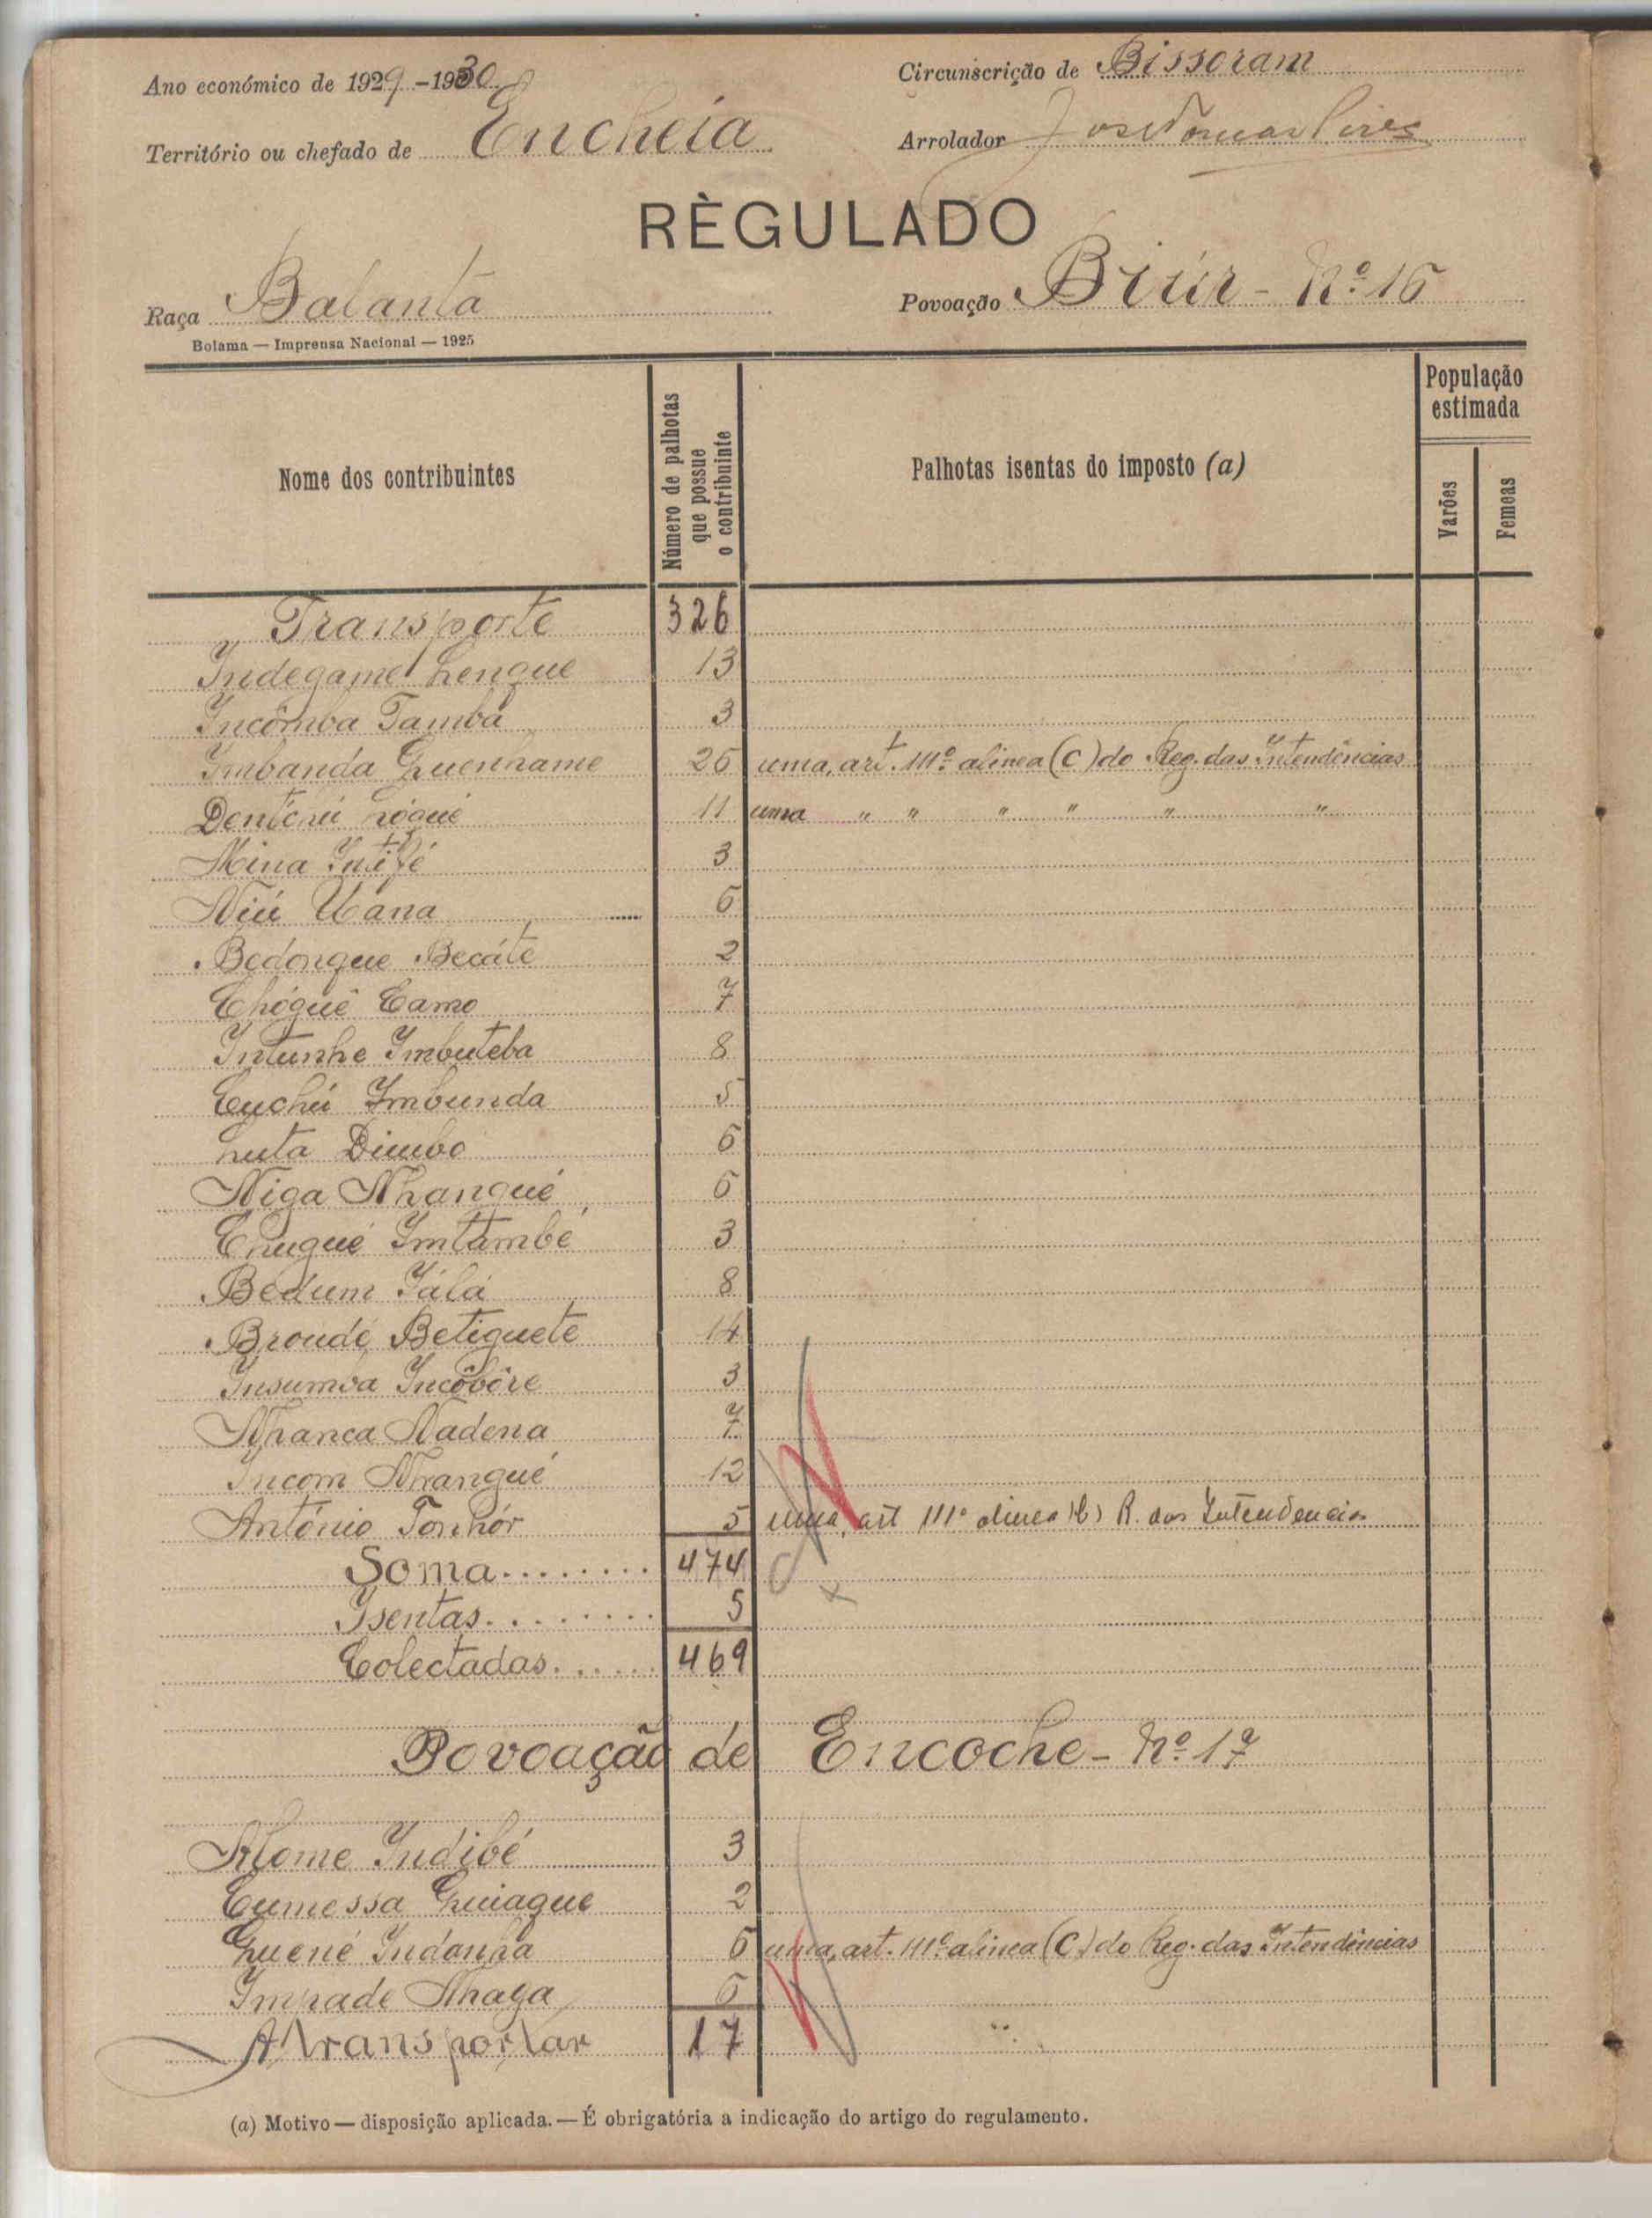 Ano económico de 1929-1930
Circunscrição de Bissoram
Território ou chefado de Encheia
Arrolador José Tomar Pires
RÈGULADO
Raça Balanta
Povoação Briúr - Nº 16
Bolama — Imprensa Nacional — 1925
Nome dos contribuintes
Número de palhotas que possue o contribuinte
Palhotas isentas do imposto (a)
População estimada
Varões
Femeas
Transporte 326
Indegame Lengue 13
Incômba Tambá 3
Imbanda Quenhame 26 uma, art. 111º alinea (C) do Reg. das Intendências
Dentchú Lógué 11 uma " " " " " "
Mina Intifé 3
Niú Uana 6
Bedongue Becáte 2
Chógué Camo 7
Intunhe Imbuteba 8
Cuchú Imbunda 5
Luta Dimbo 6
Niga Nhangué 6
Chugué Imtambé 3
Bedum Iálá 8
Broudé Betiguete 14
Insumba Incôbôre 3
Nhanca Nadena 7
Incom Nhangué 12
António Tonhór 5 uma, art 111º alinea (C) R. das Intendencias
Soma........ 474
Isentas......... 5
Colectadas...... 469
Povoação de Encoche - Nº 17
Alome Indibé 3
Cumessa Quiague 2
Quené Indanha 6 uma, art. 111º alinea (C) do Reg. das Intendências
Impade Nhaga 6
A transportar 17
(a) Motivo — disposição aplicada. — É obrigatória a indicação do artigo do regulamento.